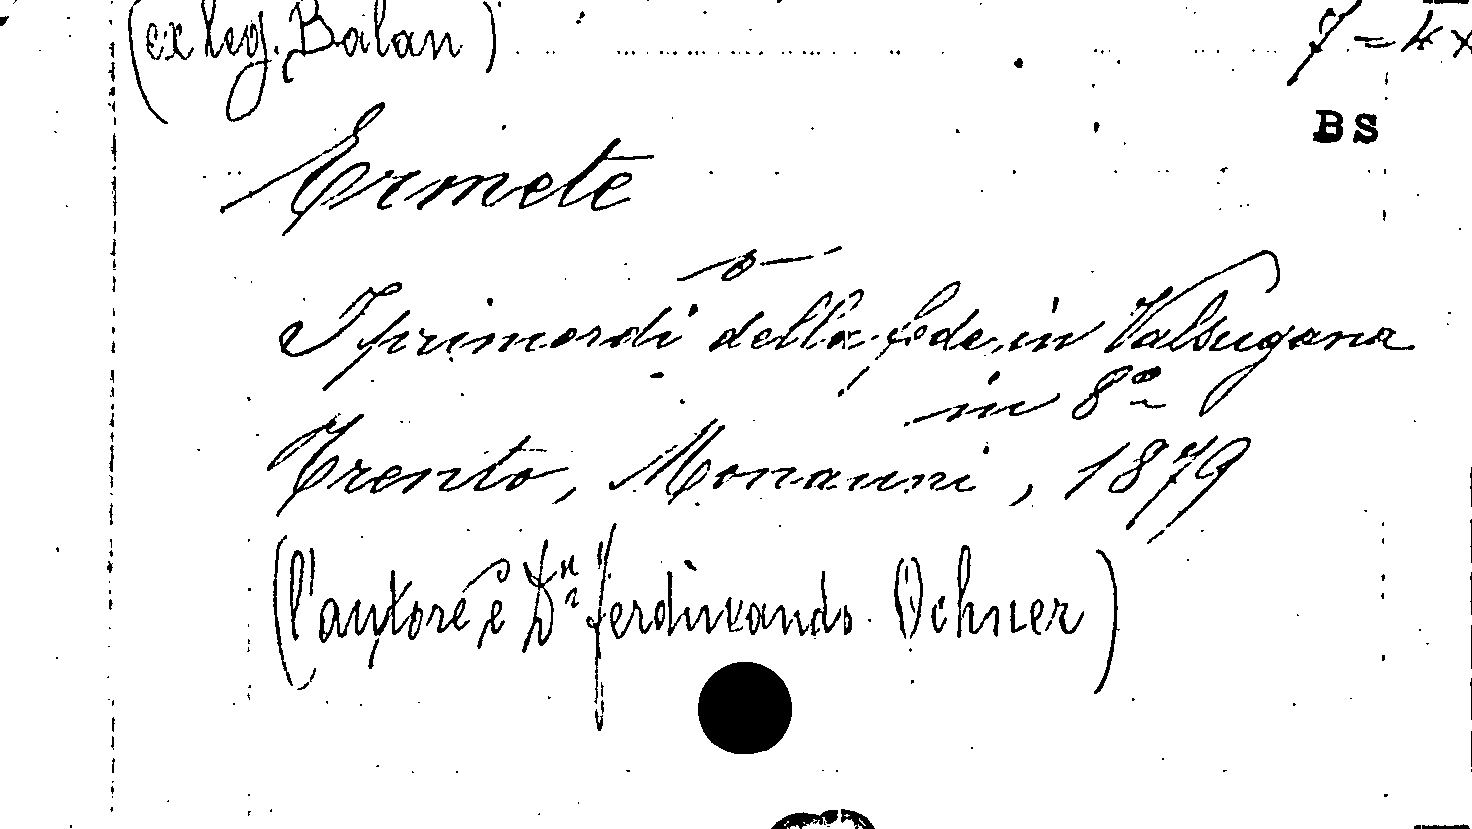 (ex leg. Balan) 7 - 4 x
BS
Ermete
I primordi della fede in Valsugana
in 8º
Trento, Monauni, 1879
(l'autore è Dn Ferdinando Ochner)